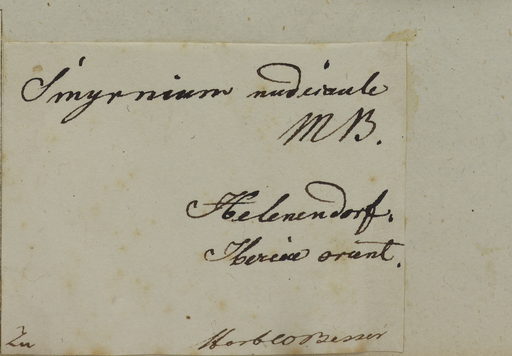 Smyrnium nudicaule
MB.
Helenendorf.
Iberiae orient.
Herb. Besser